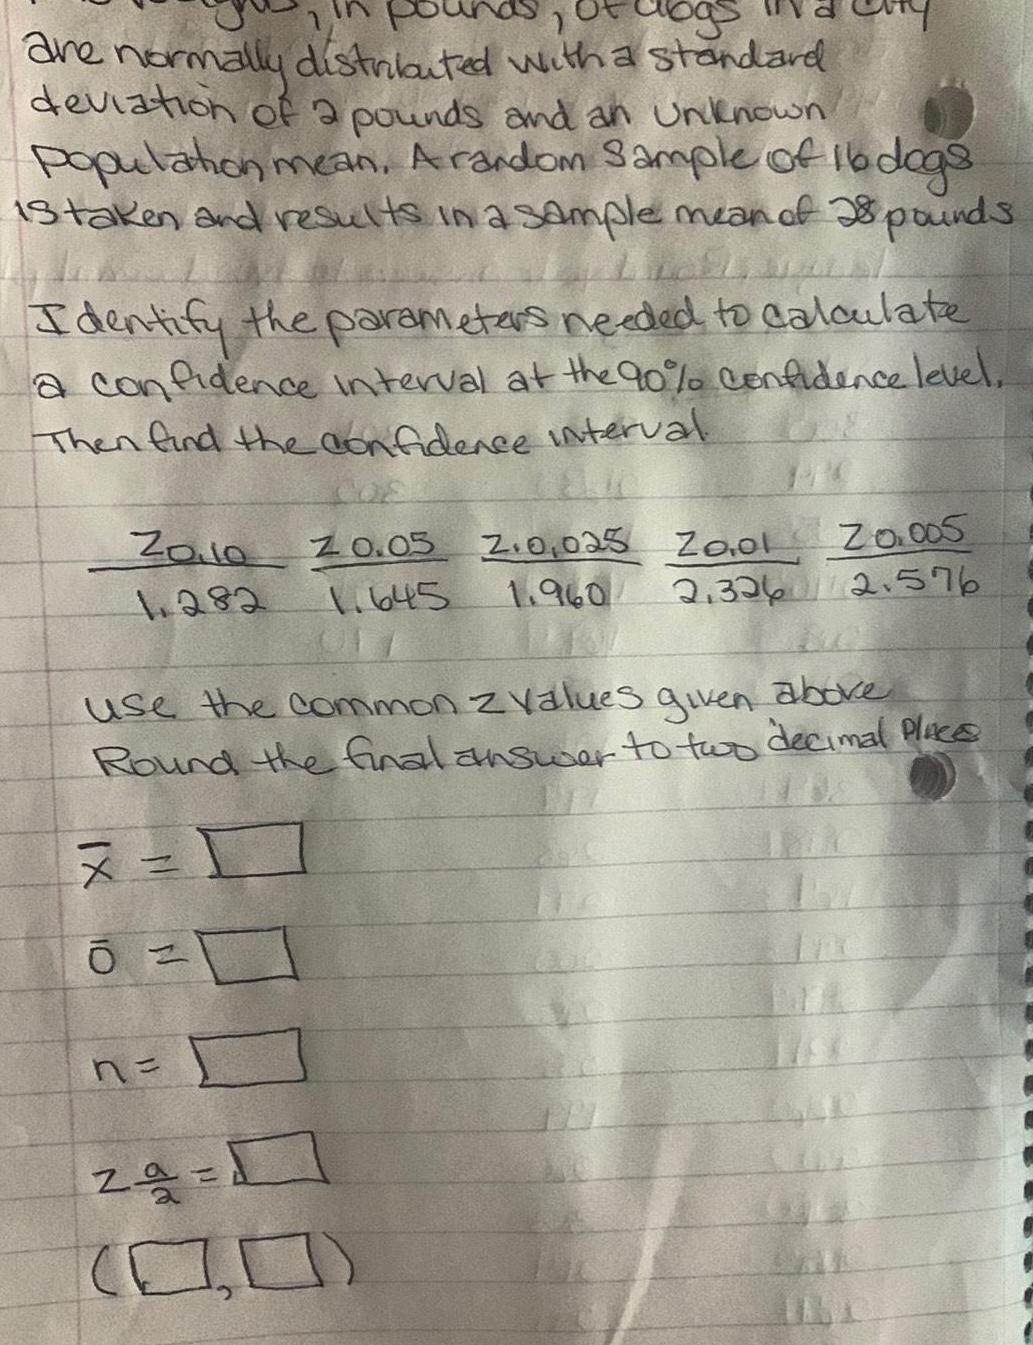 , in pounds, of dogs in a city
are normally distributed with a standard
deviation of 2 pounds and an unknown
population mean. A random sample of 16 dogs
is taken and results in a sample mean of 28 pounds
Identify the parameters needed to calculate
a confidence interval at the 90% confidence level.
Then find the confidence interval.
Z0.10 Z0.05 Z.0.025 Z0.01 Z0.005
1.282 1.645 1.960 2.326 2.576
use the common z values given above
Round the final answer to two decimal places
x̄ =
ō =
n =
z a/2 =
( , )